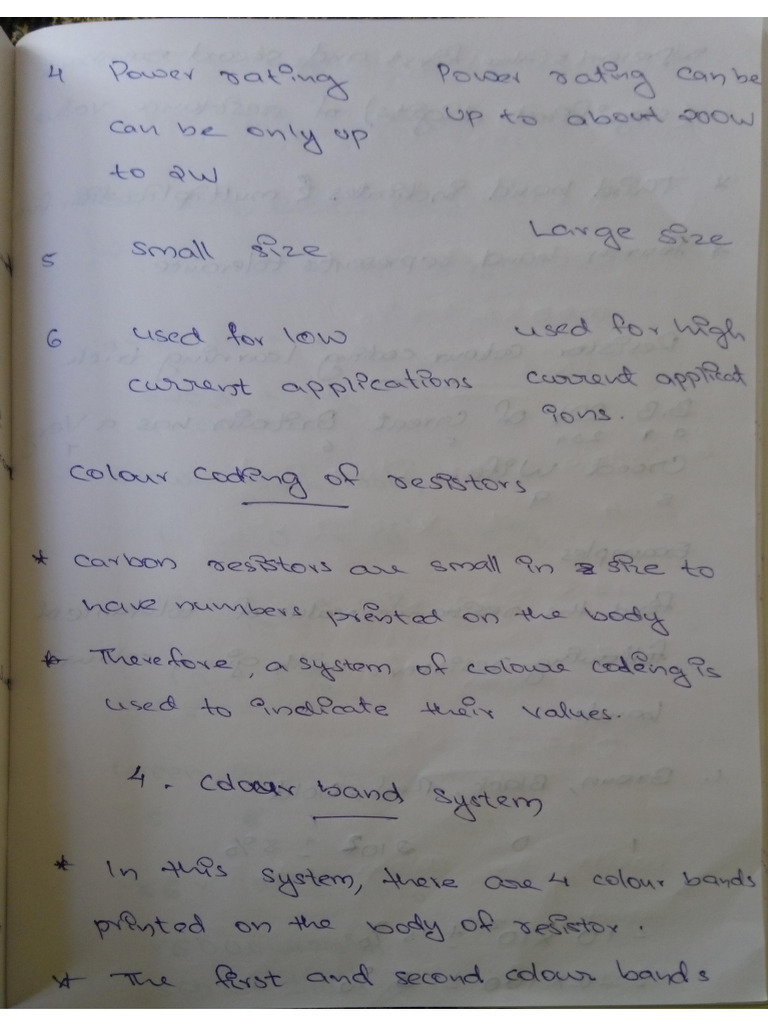 4 Power rating Power rating can be
can be only up up to about 200W
to 2W
5 small size Large size
6 used for low used for high
current applications current applicat
ions.
Colour coding of resistors
* carbon resistors are small in size to
have numbers printed on the body
* Therefore, a system of colour coding is
used to indicate their values.
4. colour band system
* In this system, there are 4 colour bands
printed on the body of resistor.
* The first and second colour bands